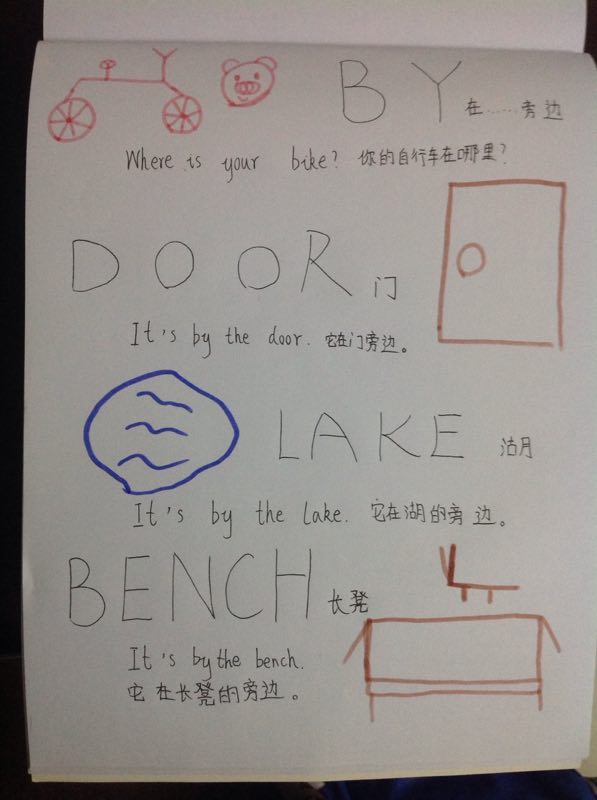 BY 在……旁边
Where is your bike? 你的自行车在哪里?
DOOR 门
It's by the door. 它在门旁边。
LAKE 湖
It's by the lake. 它在湖的旁边。
BENCH 长凳
It's by the bench.
它在长凳的旁边。